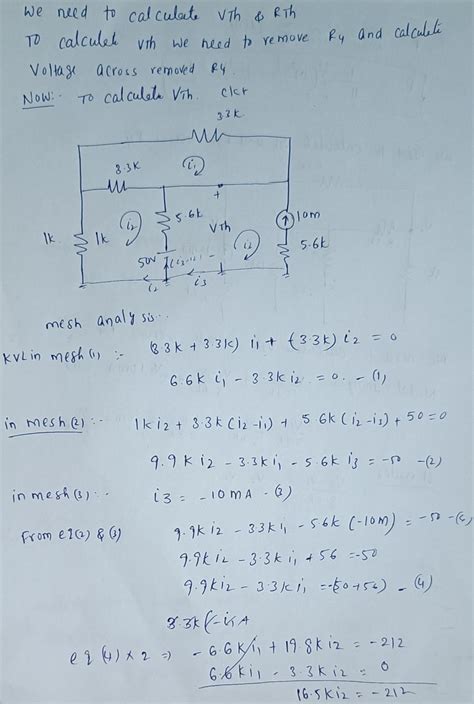 We need to calculate VTh & RTh
To calculate Vth we need to remove R4 and calculate
Voltage across removed R4.
Now:- To calculate VTh. Ckt
3.3k
3.3k
i1
+
10m
1k
1k
i2
5.6k
Vth
i3
5.6k
50V
(i2-i3)
-
i2
i3
mesh analysis:-
KVL in mesh(1) :- (3.3k + 3.3k) i1 + (-3.3k) i2 = 0
6.6k i1 - 3.3k i2 = 0. -(1)
in mesh(2) :- 1k i2 + 3.3k (i2-i1) + 5.6k (i2-i3) + 50 = 0
9.9k i2 - 3.3k i1 - 5.6k i3 = -50 -(2)
in mesh(3) :- i3 = -10mA -(3)
From eq(2) & (3) 9.9k i2 - 3.3k i1 - 5.6k (-10m) = -50 -(4)
9.9k i2 - 3.3k i1 + 56 = -50
9.9k i2 - 3.3k i1 = -(50+56) -(4)
3.3k (-i1
eq (4) x 2 => -6.6k i1 + 19.8k i2 = -212
6.6k i1 - 3.3k i2 = 0
16.5k i2 = -212